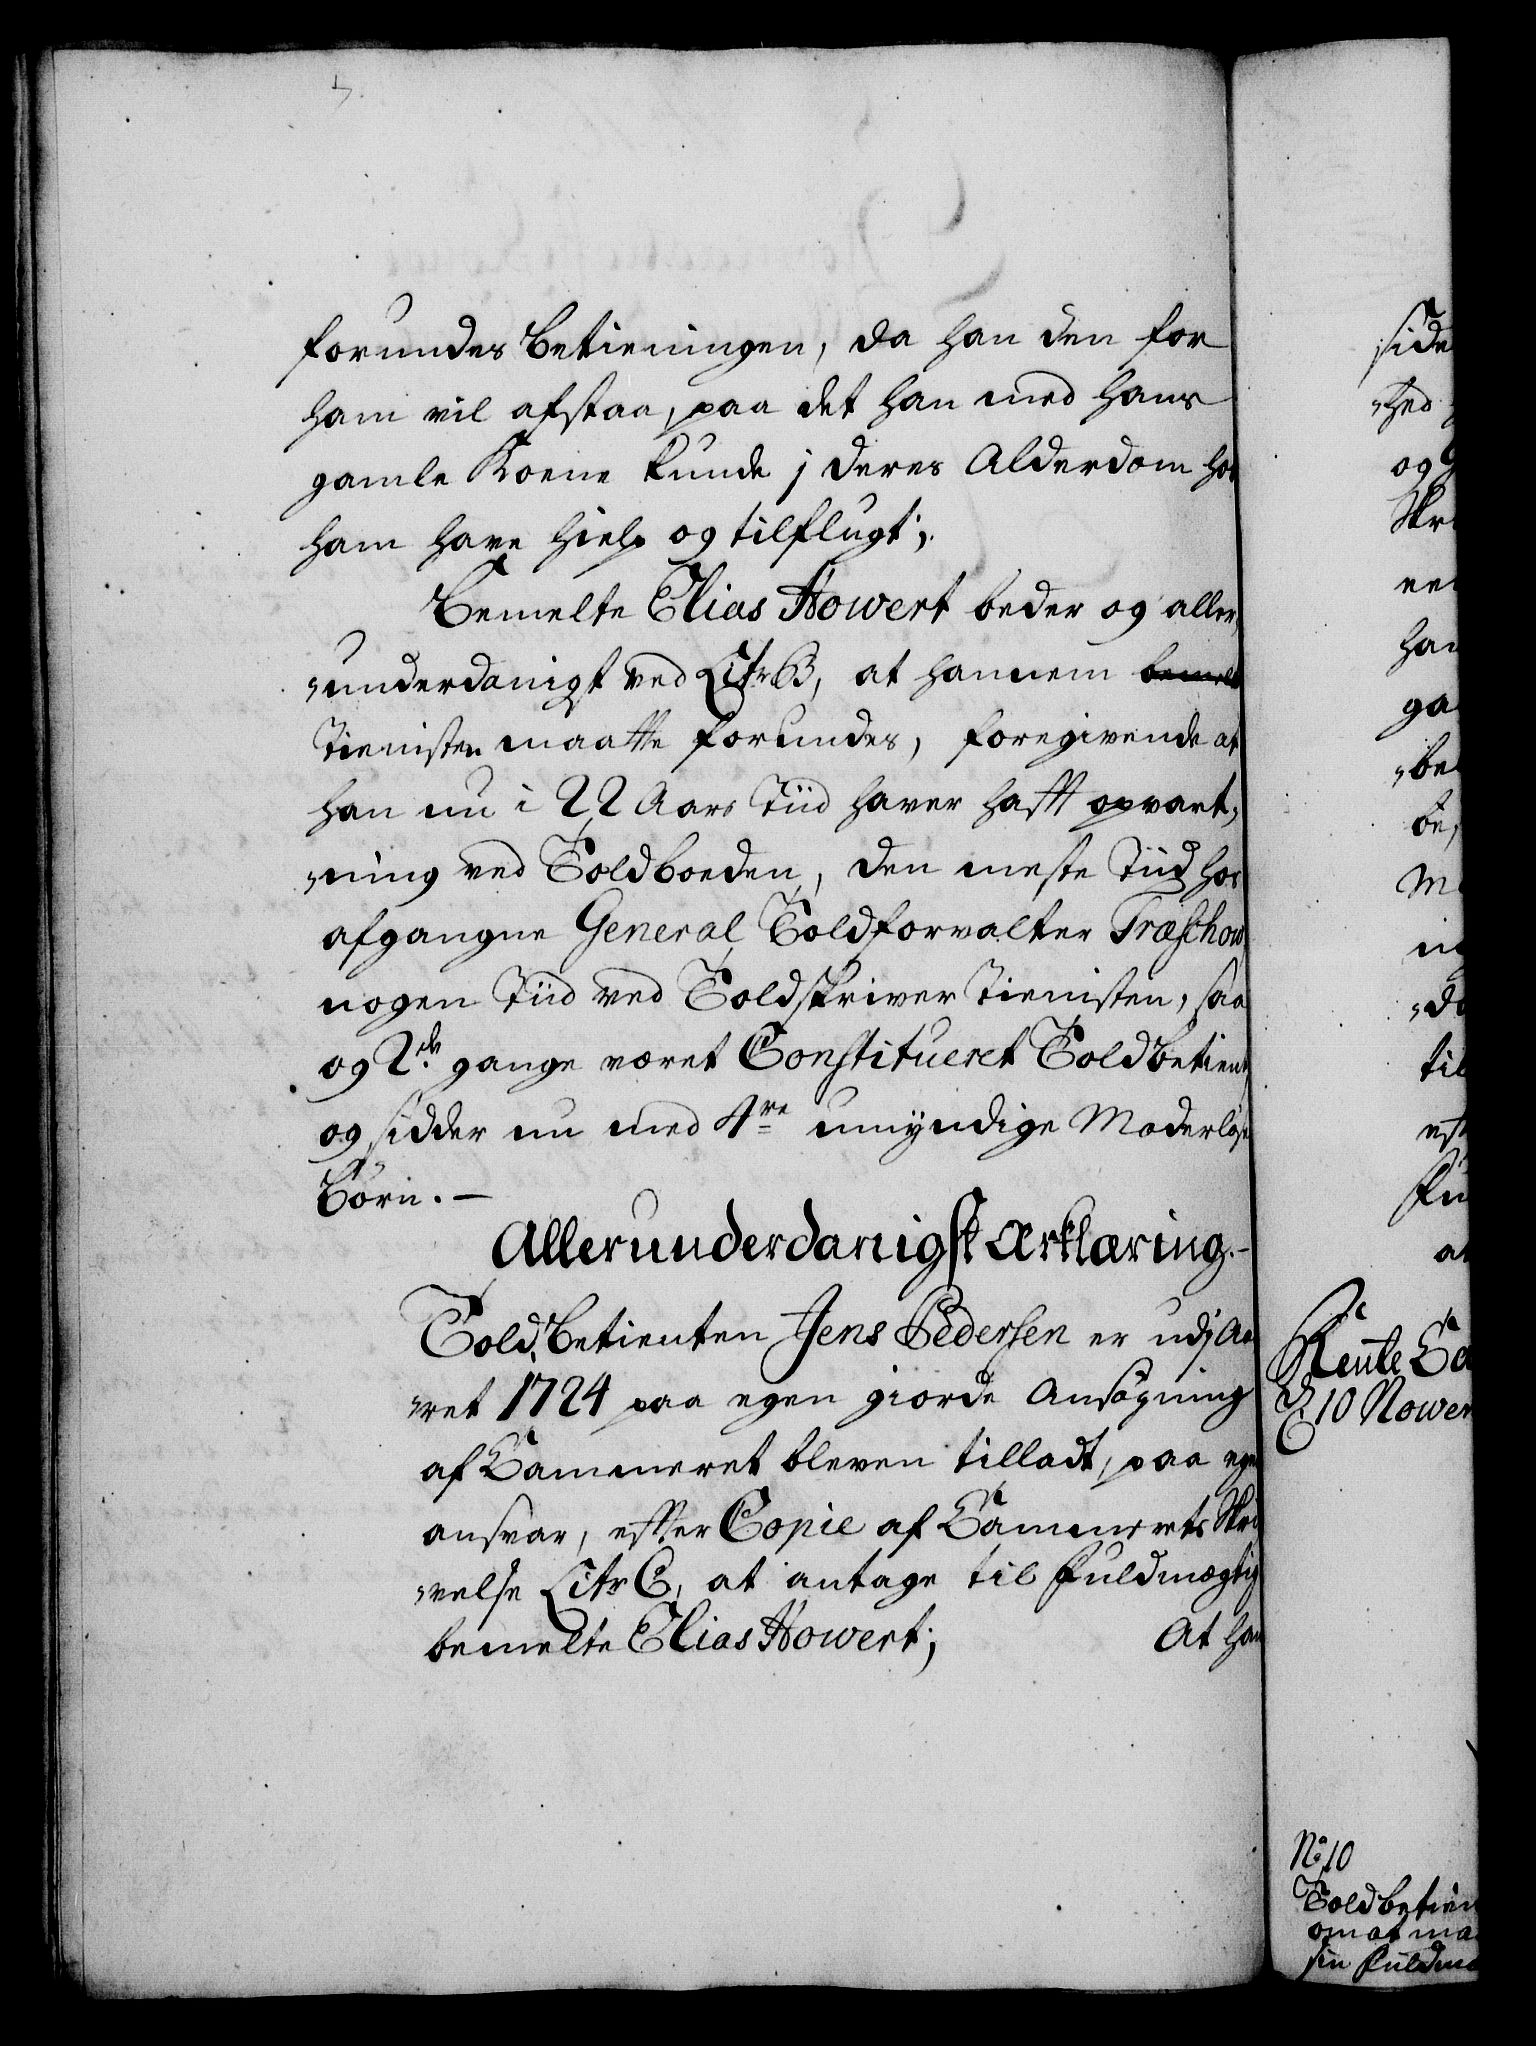 forundes Betieningen, da han den for
ham vil afstaa, paa det han med hans
gamle Koene kunde j deres Alderdom hos
ham have hielp og tilflugt;
Bemelte Elias Howert beder og aller,
„underdanigst ved Litr B, at hannem bemelt
Tienisten maatte forundes, foregivende at
han nu i 22 Aars Tiid haver hafft opvart,
„ning ved Toldboeden, den meste Tiid hos
afgangne General Toldforvalter Træschow
nogen Tiid ved Toldskriver Tienisten, saa
og 2de gange været Constitueret Toldbetient,
og sidder nu med 4re umyndige Moderløse
Børn. —
Allerunderdanigst Erklæring.-
Toldbetienten Jens Pedersen er udj Aa
„ret 1724 paa egen giorde Ansøgning
af Cammeret bleven tilladt, paa egen
ansvar, efter Copie af Cammerets Skri
„velse Litr C, at antage til fuldmægtig
bemelte Elias Howert;
At han
side
„hed
og
Skri
han
til
at
Rente Ca
D 10 Nowem
No 10
Toldbetien
om at ma
sin fuldmæ